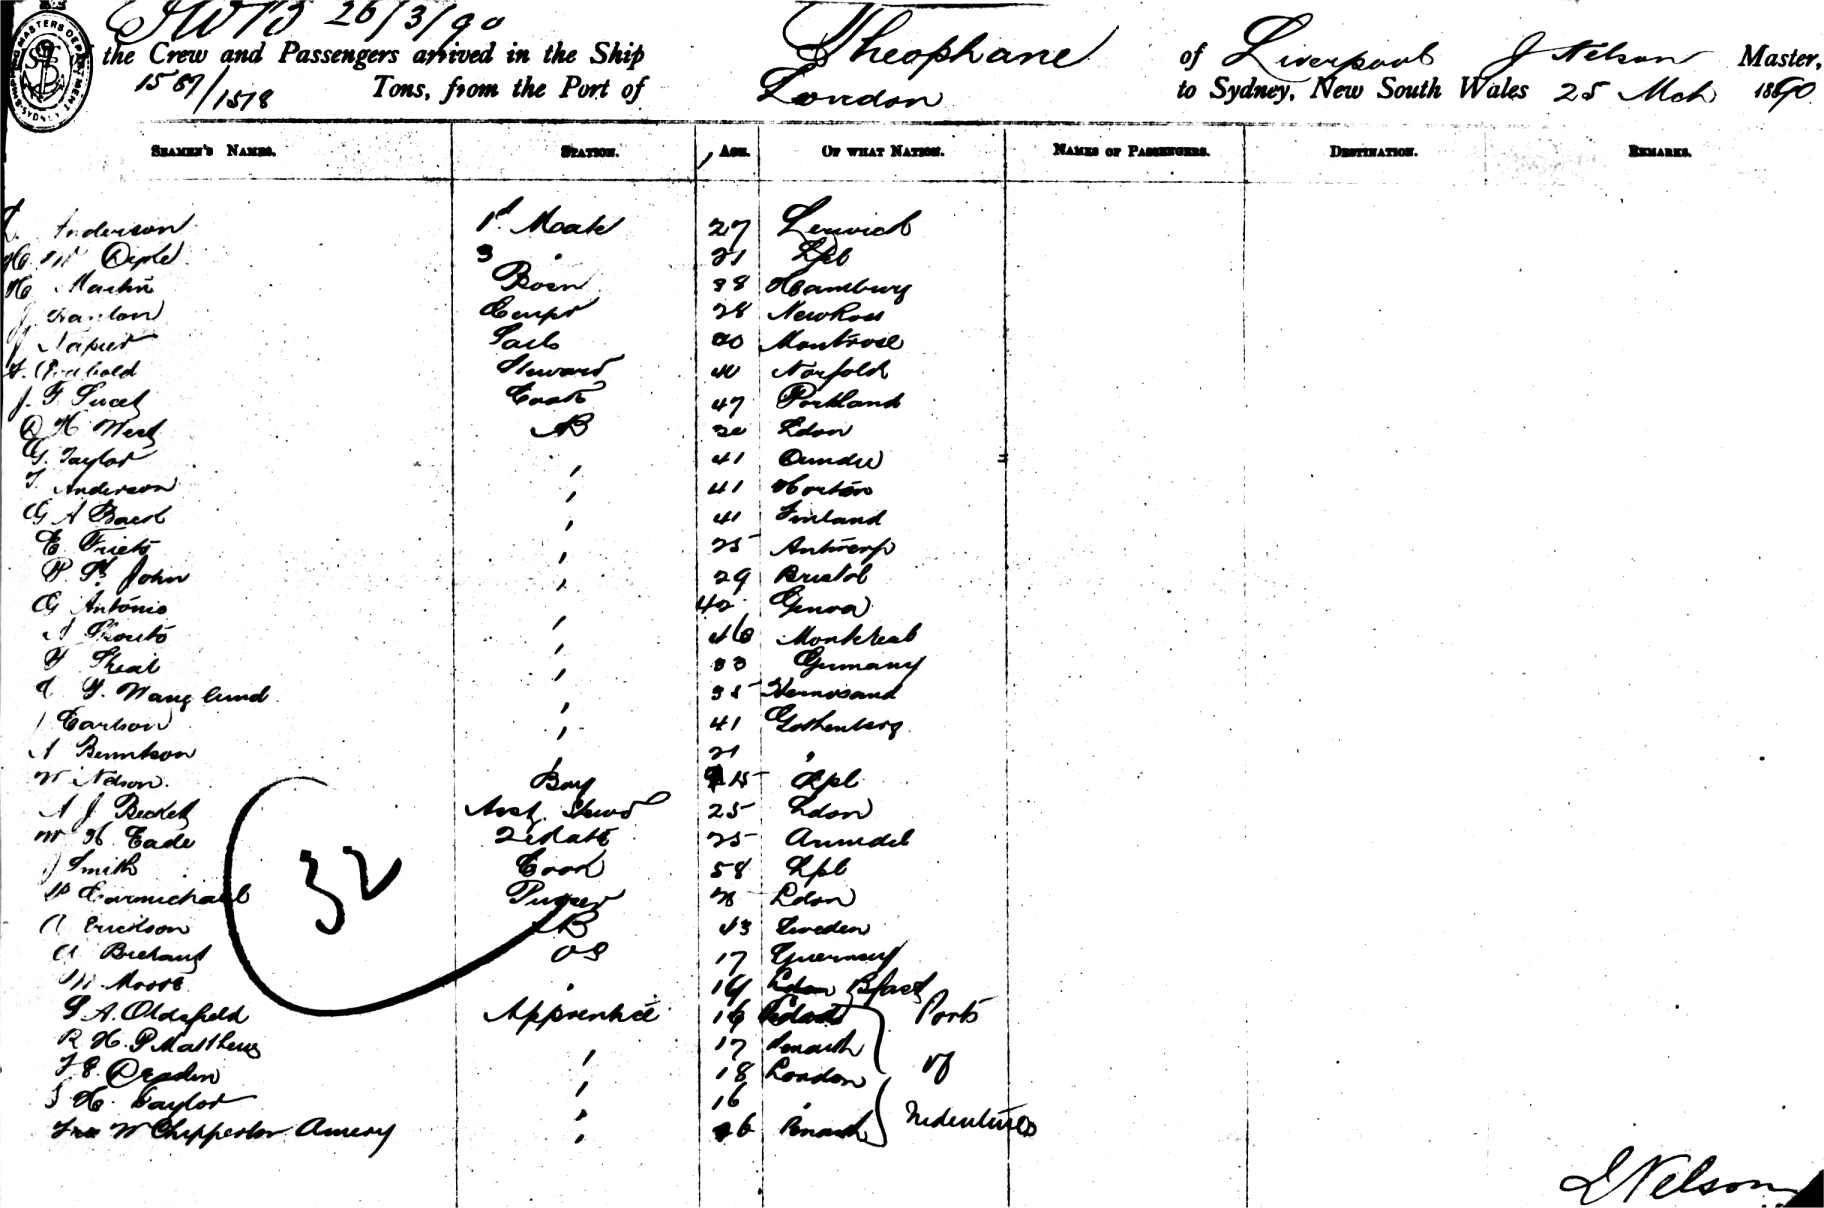 26/3/90
of the Crew and Passengers arrived in the Ship Theophane of Liverpool J Nelson Master,
1587/1518 Tons, from the Port of London to Sydney, New South Wales 25 Mch 1890
SHIPPING MASTERS DEPARTMENT SYDNEY
SEAMEN'S NAMES. STATION. AGE. OF WHAT NATION. NAMES OF PASSENGERS. DESTINATION. REMARKS.
Anderson 1st Mate 27 Lerwick
H. W 3 " 21 Lpl
H Martin Bosn 38 Hamburg
J Hanlon Carpr 28 New Ross
J Napier Sails 30 Montrose
Steward 40 Norfolk
J. F. Cook 47 Portland
D H West AB 30 Ldon
G. Taylor , 41 Dundee
T. Anderson , 41 Horten
G A Back , 41 Finland
E. , 25 Antwerp
P. St John , 29 Bristol
G Antonio , 42 Genoa
, 46 Montreal
, 33 Germany
Y. Wanglund , 35 Hernosand
Carlson , 41 Gothenberg
A Benntson , 21 "
W Nelson Boy 15 Lpl
A J Becket Asst Stewd 25 Ldon
W H. Eade 2e Mate 25 Arundel
J Smith Cook 58 Lpl
Carmichael Purser Ldon
Erickson AB 43 Sweden
OS 17 Guernsey
M. Moore " 19 Ldon Bfast
G. A. Oldsfield Apprentice 16 Ports
R H. P Matthews , 17 Penarth
F. E. , 18 London of
H. Taylor , 16 "
W Chipperton Amery , 16 Penarth Indentures
32
J Nelson